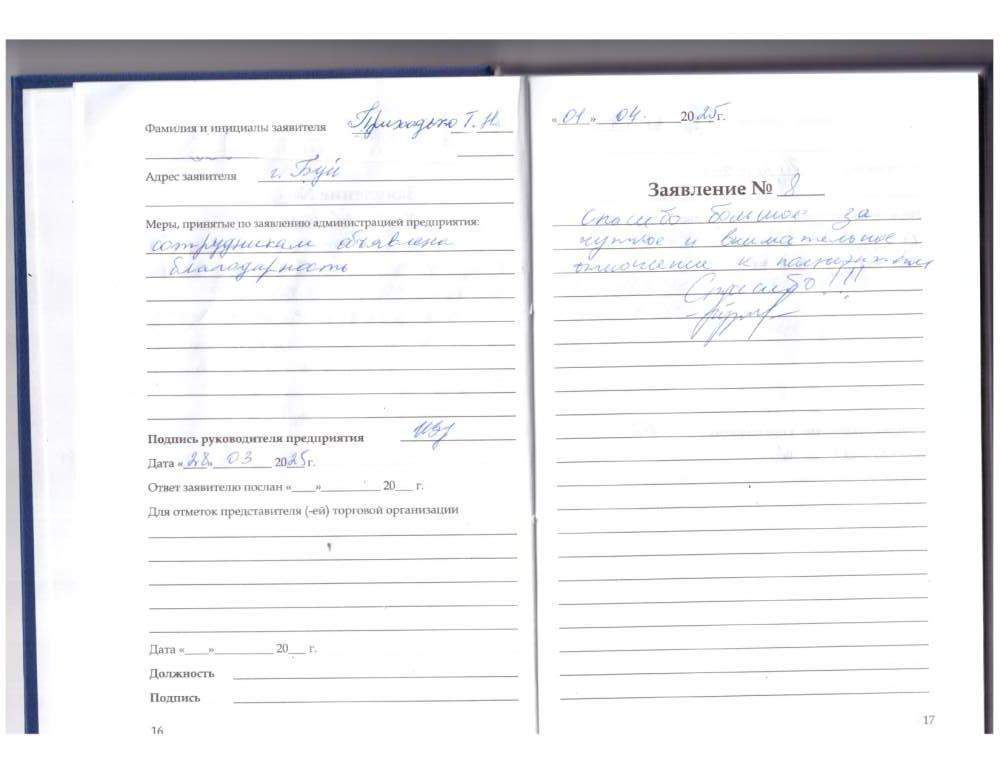 Фамилия и инициалы заявителя Приходько Т. Н.
Адрес заявителя г. Буй
Меры, принятые по заявлению администрацией предприятия:
сотрудникам объявлена
благодарность
Подпись руководителя предприятия
Дата «28» 03 2025 г.
Ответ заявителю послан «____»__________ 20___ г.
Для отметок представителя (-ей) торговой организации
Дата «____»__________ 20___ г.
Должность
Подпись
16
«01» 04. 2025 г.
Заявление № 8
Спасибо большое за
чуткое и внимательное
отношение к
Спасибо!!!
17